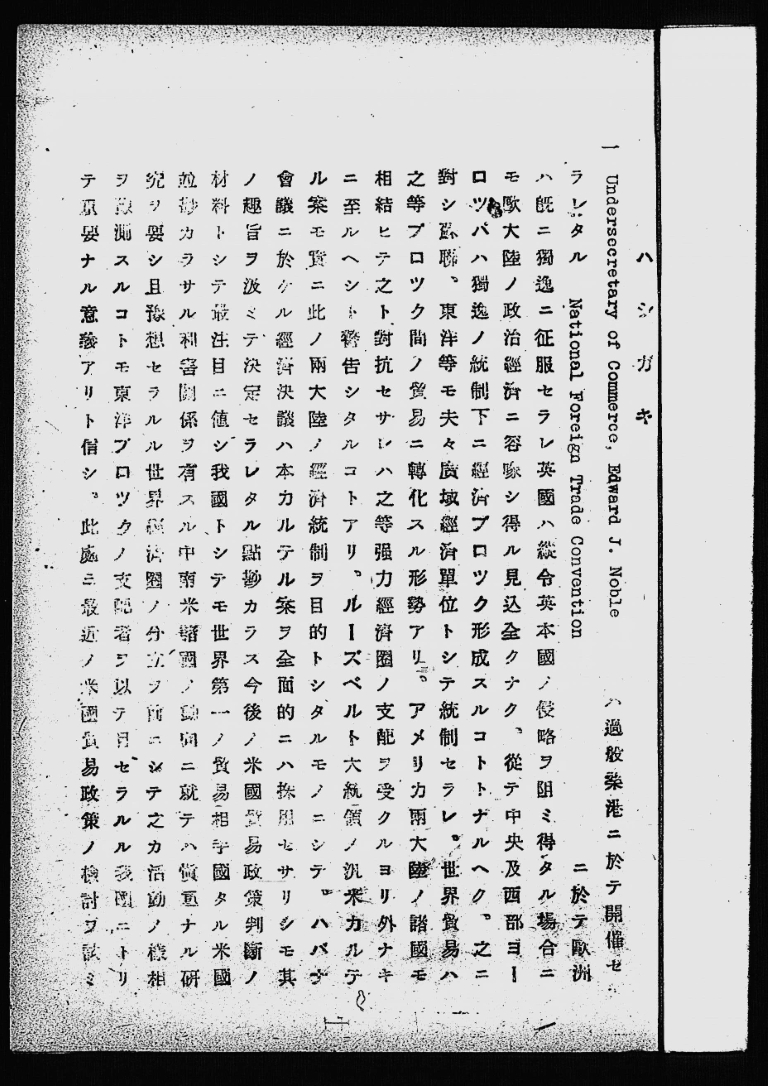 ハシガキ
一 Undersecretary of Commerce, Edward J. Noble ハ過般桑港ニ於テ開催セ
ラレタル National Foreign Trade Convention ニ於テ歐洲
ハ既ニ獨逸ニ征服セラレ英國ハ縱令英本國ノ侵略ヲ阻ミ得タル場合ニ
モ歐大陸ノ政治經濟ニ容喙シ得ル見込全クナク、從テ中央及西部ヨー
ロツパハ獨逸ノ統制下ニ經濟ブロツク形成スルコトトナルヘク、之ニ
對シ蘇聯、東洋等モ夫々廣域經濟單位トシテ統制セラレ、世界貿易ハ
之等ブロツク間ノ貿易ニ轉化スル形勢アリ。アメリカ兩大陸ノ諸國モ
相結ヒテ之ト對抗セサレハ之等强力經濟圈ノ支配ヲ受クルヨリ外ナキ
ニ至ルヘシト警告シタルコトアリ。ルーズベルト大統領ノ汎米カルテ
ル案モ實ニ此ノ兩大陸ノ經濟統制ヲ目的トシタルモノニシテ。ハバナ
會議ニ於ケル經濟決議ハ本カルテル案ヲ全面的ニハ採用セサリシモ其
ノ趣旨ヲ汲ミテ決定セラレタル點尠カラス今後ノ米國貿易政策判斷ノ
材料トシテ最注目ニ値シ我國トシテモ世界第一ノ貿易相手國タル米國
竝尠カラサル利害關係ヲ有スル中南米諸國ノ動向ニ就テハ愼重ナル研
究ヲ要シ且豫想セラルル世界經濟圈ノ分立ヲ前ニシテ之カ活動ノ樣相
ヲ豫測スルコトモ東洋ブロツクノ支配者ヲ以テ目セラルル我國ニトリ
テ重要ナル意義アリト信シ。此處ニ最近ノ米國貿易政策ノ檢討ヲ試ミ